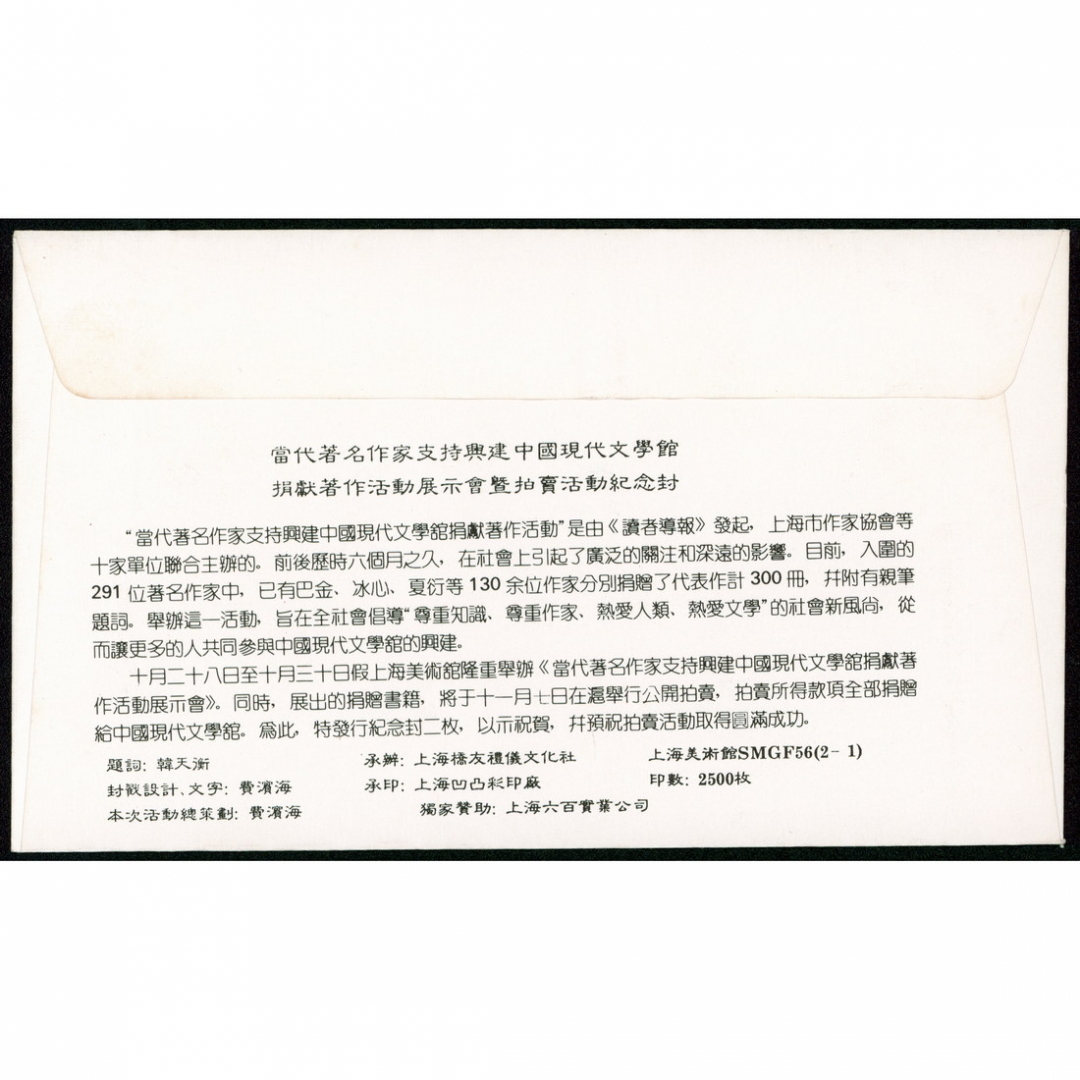 當代著名作家支持興建中國現代文學館
捐獻著作活動展示會暨拍賣活動紀念封
“當代著名作家支持興建中國現代文學舘捐獻著作活動”是由《讀者導報》發起，上海市作家協會等
十家單位聯合主辦的。前後歷時六個月之久，在社會上引起了廣泛的關注和深遠的影響。目前，入圍的
291 位著名作家中，已有巴金、冰心、夏衍等 130 余位作家分別捐贈了代表作計 300 冊，幷附有親筆
題詞。舉辦這一活動，旨在全社會倡導“尊重知識、尊重作家、熱愛人類、熱愛文學”的社會新風尚，從
而讓更多的人共同參與中國現代文學舘的興建。
十月二十八日至十月三十日假上海美術舘隆重舉辦《當代著名作家支持興建中國現代文學舘捐獻著
作活動展示會》。同時，展出的捐贈書籍，將于十一月七日在滬舉行公開拍賣，拍賣所得款項全部捐贈
給中國現代文學舘。爲此，特發行紀念封二枚，以示祝賀，幷預祝拍賣活動取得圓滿成功。
題詞: 韓天衡 承辦: 上海橋友禮儀文化社 上海美術館SMGF56(2-1)
封戳設計、文字: 費濱海 承印: 上海凹凸彩印廠 印數: 2500枚
本次活動總策劃: 費濱海 獨家贊助: 上海六百實業公司